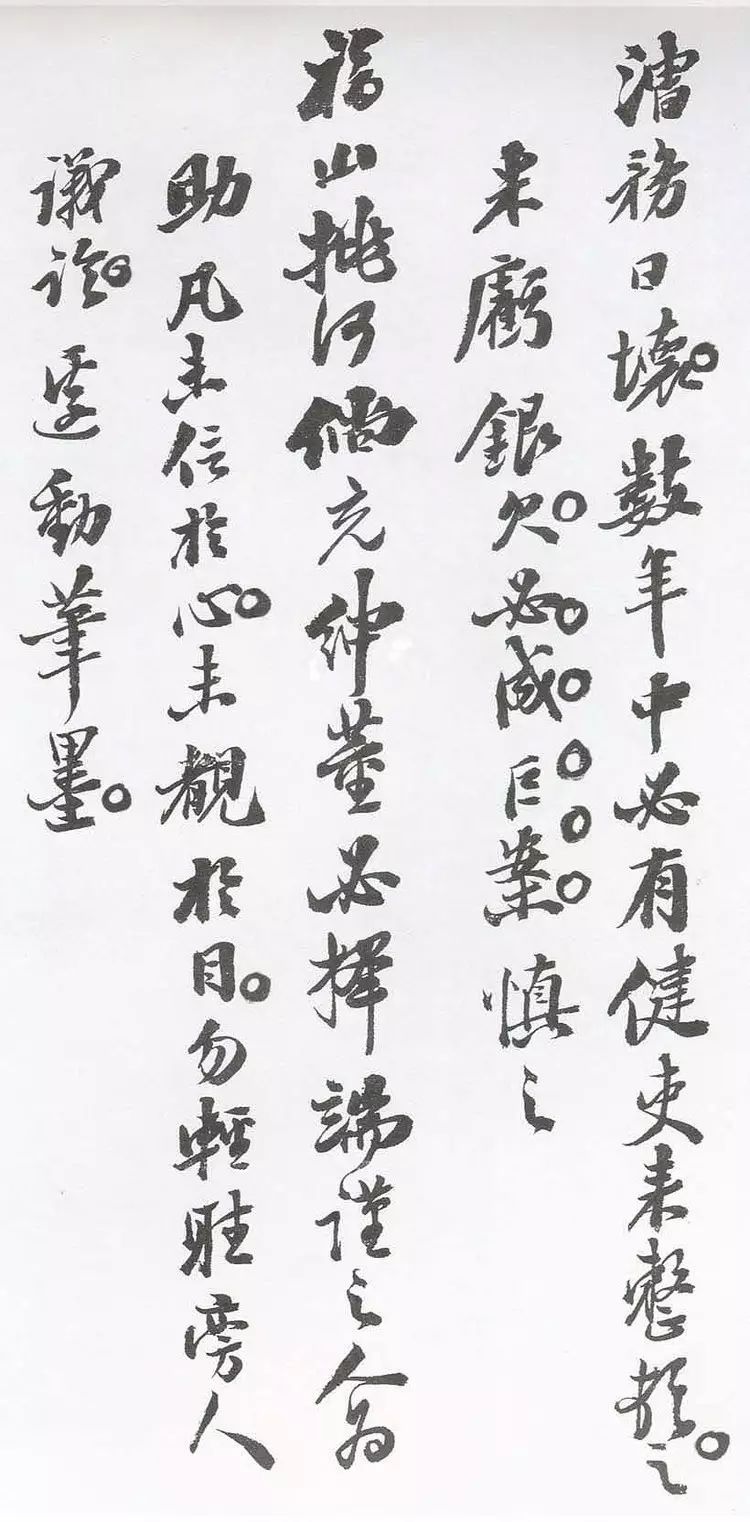 漕務日壞數年中必有健吏来整頓之
来虧銀欠必成巨案慎之
福山挑河倘充紳董必擇端謹之人為
助凡未信於心未覩於目勿輕聽旁人
議論遽動筆墨